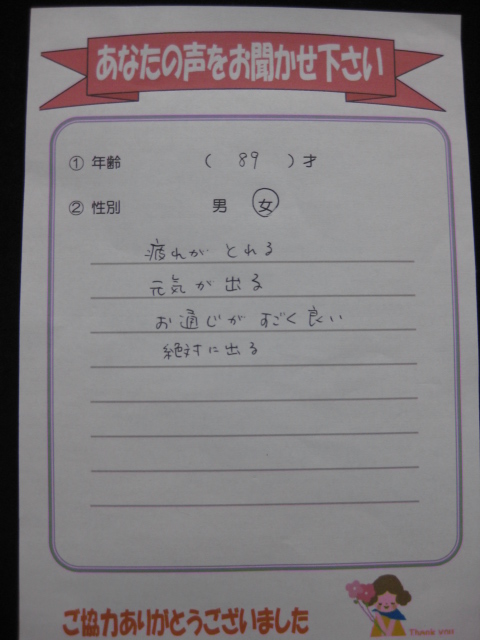 あなたの声をお聞かせ下さい
① 年齢 ( 89 ) 才
② 性別 男 女
疲れが とれる
元気が 出る
お通じが すごく 良い
絶対に 出る
ご協力ありがとうございました
Thank you